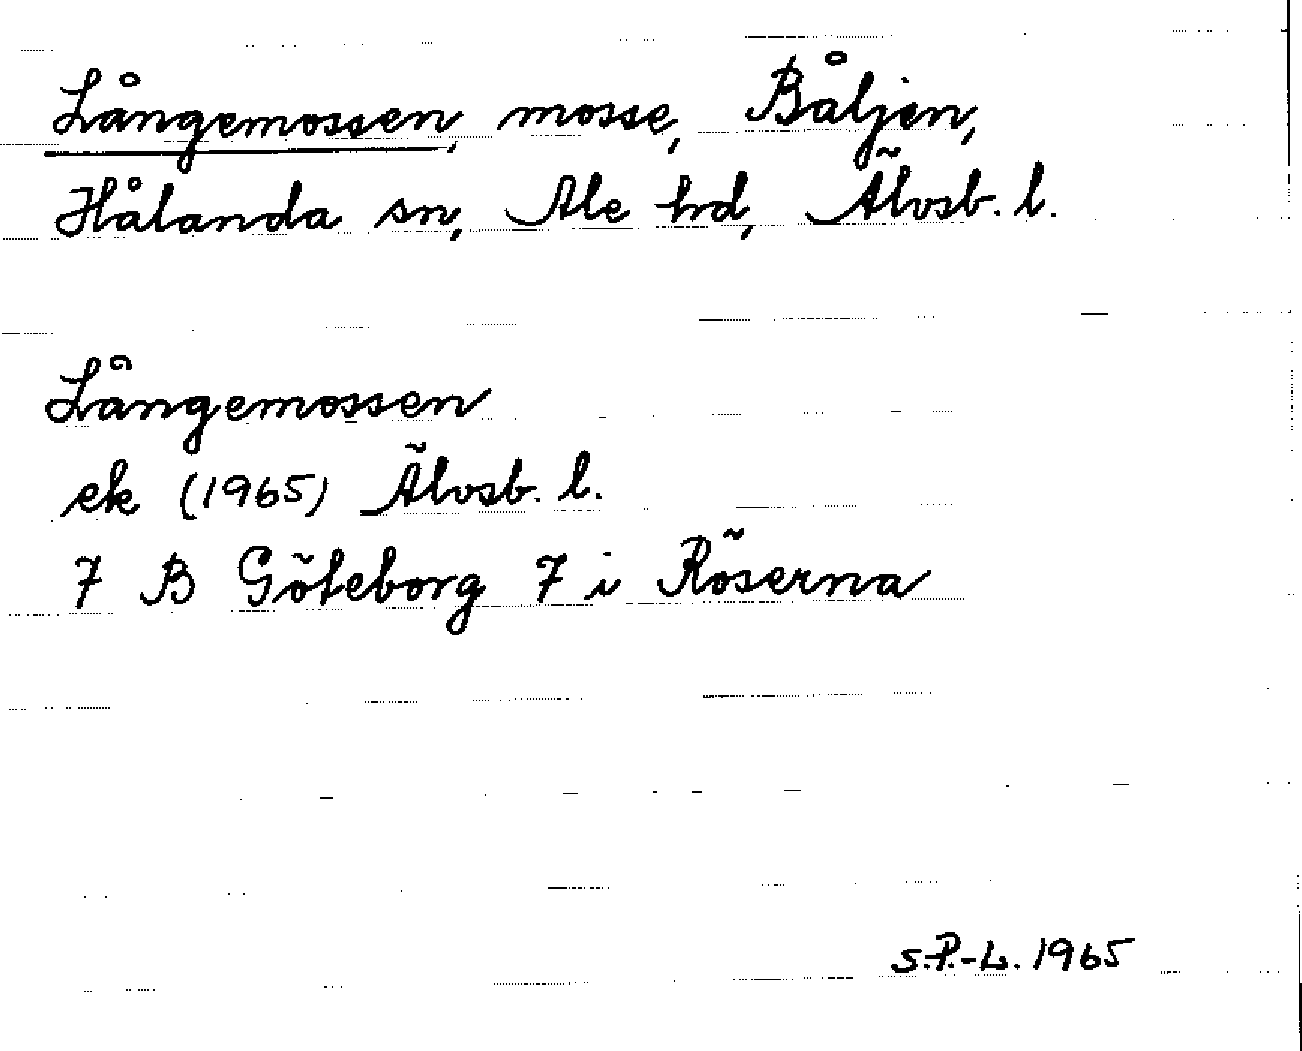 Långemossen, mosse, Båljen,
Hålanda sn, Ale hd, Älvsb. l.
Långemossen
ek (1965) Älvsb. l.
7 B Göteborg 7 i Röserna
S.P.-L. 1965